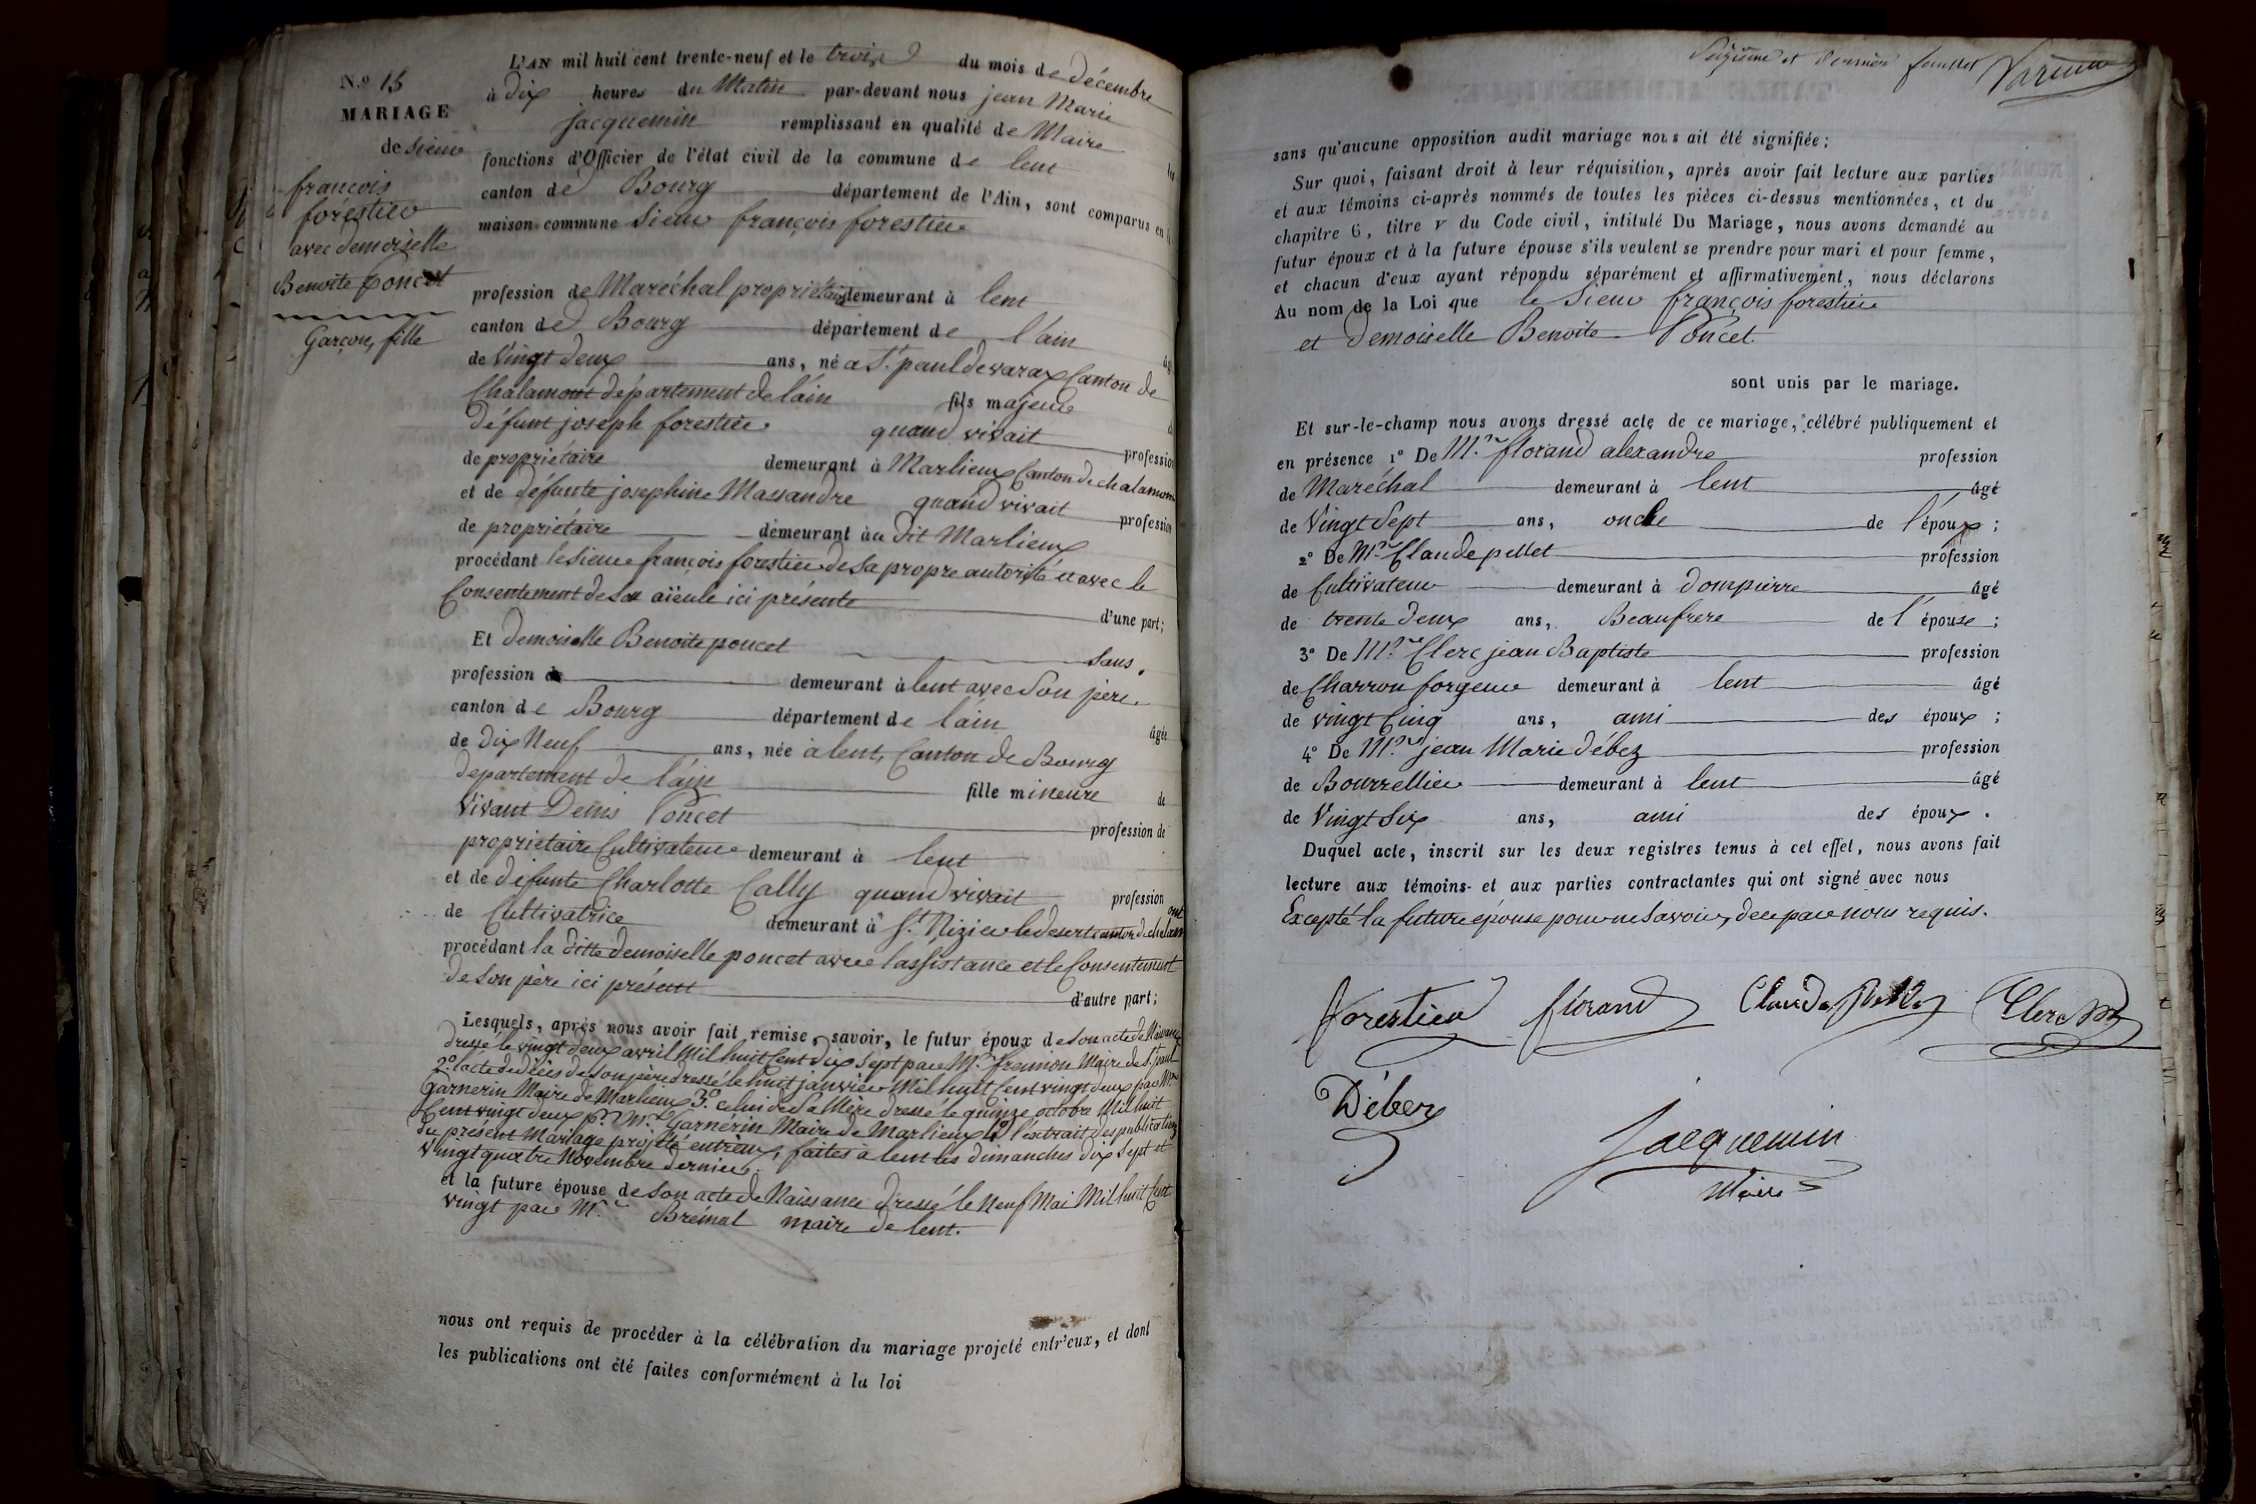 N.o 15
MARIAGE
de sieur
françois
forestier
avec demoiselle
Benoite poncet
Garçon, fille
L'AN mil huit cent trente-neuf et le trois du mois de décembre
à dix heures du Matin par-devant nous jean Marie
jacquemin remplissant en qualité de Maire les
fonctions d'Officier de l'état civil de la commune de lent
canton de Bourg département de l'Ain, sont comparus en la
maison commune Sieur françois forestier
profession de Maréchal proprietaire demeurant à lent
canton de Bourg département de l'ain âgé
de Vingt deux ans, né a St. paul de varax Canton de
Chalamont département de l'ain fils majeur de
défunt joseph forestier quand vivait profession
de propriétaire demeurant à Marlieux Canton de chalamont
et de défunte josephine Massandre quand vivait profession
de propriétaire demeurant au dit Marlieux
procédant le Sieur françois forestier de Sa propre autorité et avec le
Consentement de Son aïeule ici présente d'une part;
Et demoiselle Benoite poncet Sans
profession demeurant à lent avec Son père
canton de Bourg département de l'ain âgée
de dix Neuf ans, née à lent, Canton de Bourg
département de l'ain fille mineure de
Vivant Denis Poncet profession de
proprietaire Cultivateur demeurant à lent
et de défunte Charlotte Cally quand vivait profession
de Cultivatrice demeurant à St. Nizier le desert canton de chalamont
procédant la ditte demoiselle poncet avec l'assistance et le Consentement
de Son père ici présent d'autre part;
Lesquels, après nous avoir fait remise, savoir, le futur époux de son acte de Naissance
dressé le vingt deux avril Mil huit Cent dix Sept par Mr. Maire de St. paul
2o l'acte de décès de Son père dressé le huit janvier Mil huit Cent vingt deux par Mr
Garnerin Maire de Marlieux 3o celui de Sa Mère dressé le quinze octobre Mil huit
Cent vingt deux pr. Mr. Garnerin Maire de Marlieux 4o l'extrait des publications
du présent Mariage projetté entr'eux, faites à lent les dimanches dix Sept et
Vingt quatre Novembre dernier.
et la future épouse de Son acte de Naissance dressé le Neuf Mai Mil huit Cent
vingt par Mr. Brémal maire de lent.
nous ont requis de procéder à la célébration du mariage projeté entr'eux, et dont
les publications ont été faites conformément à la loi
Seizième et dernier feuillet
sans qu'aucune opposition audit mariage nous ait été signifiée;
Sur quoi, faisant droit à leur réquisition, après avoir fait lecture aux parties
et aux témoins ci-après nommés de toutes les pièces ci-dessus mentionnées, et du
chapitre 6, titre v du Code civil, intitulé Du Mariage, nous avons demandé au
futur époux et à la future épouse s'ils veulent se prendre pour mari et pour femme,
et chacun d'eux ayant répondu séparément et affirmativement, nous déclarons
Au nom de la Loi que le Sieur françois forestier
et demoiselle Benoite Poncet
sont unis par le mariage.
Et sur-le-champ nous avons dressé acte de ce mariage, célébré publiquement et
en présence 1o De Mr. florand alexandre profession
de Maréchal demeurant à lent âgé
de Vingt Sept ans, oncle de l'époux;
2o De Mr. Claude pellet profession
de Cultivateur demeurant à dompierre âgé
de trente deux ans, Beaufrere de l'épouse;
3o De Mr. Clerc jean Baptiste profession
de Charron forgeur demeurant à lent âgé
de vingt Cinq ans, ami des époux;
4o De Mr. jean Marie débez profession
de Bourrellier demeurant à lent âgé
de Vingt Six ans, ami des époux.
Duquel acte, inscrit sur les deux registres tenus à cet effet, nous avons fait
lecture aux témoins et aux parties contractantes qui ont signé avec nous
Excepté la future épouse pour ne Savoir, de ce par nous requis.
forestier florand Claude pellet Clerc
Débez
Jacquemin
Maire